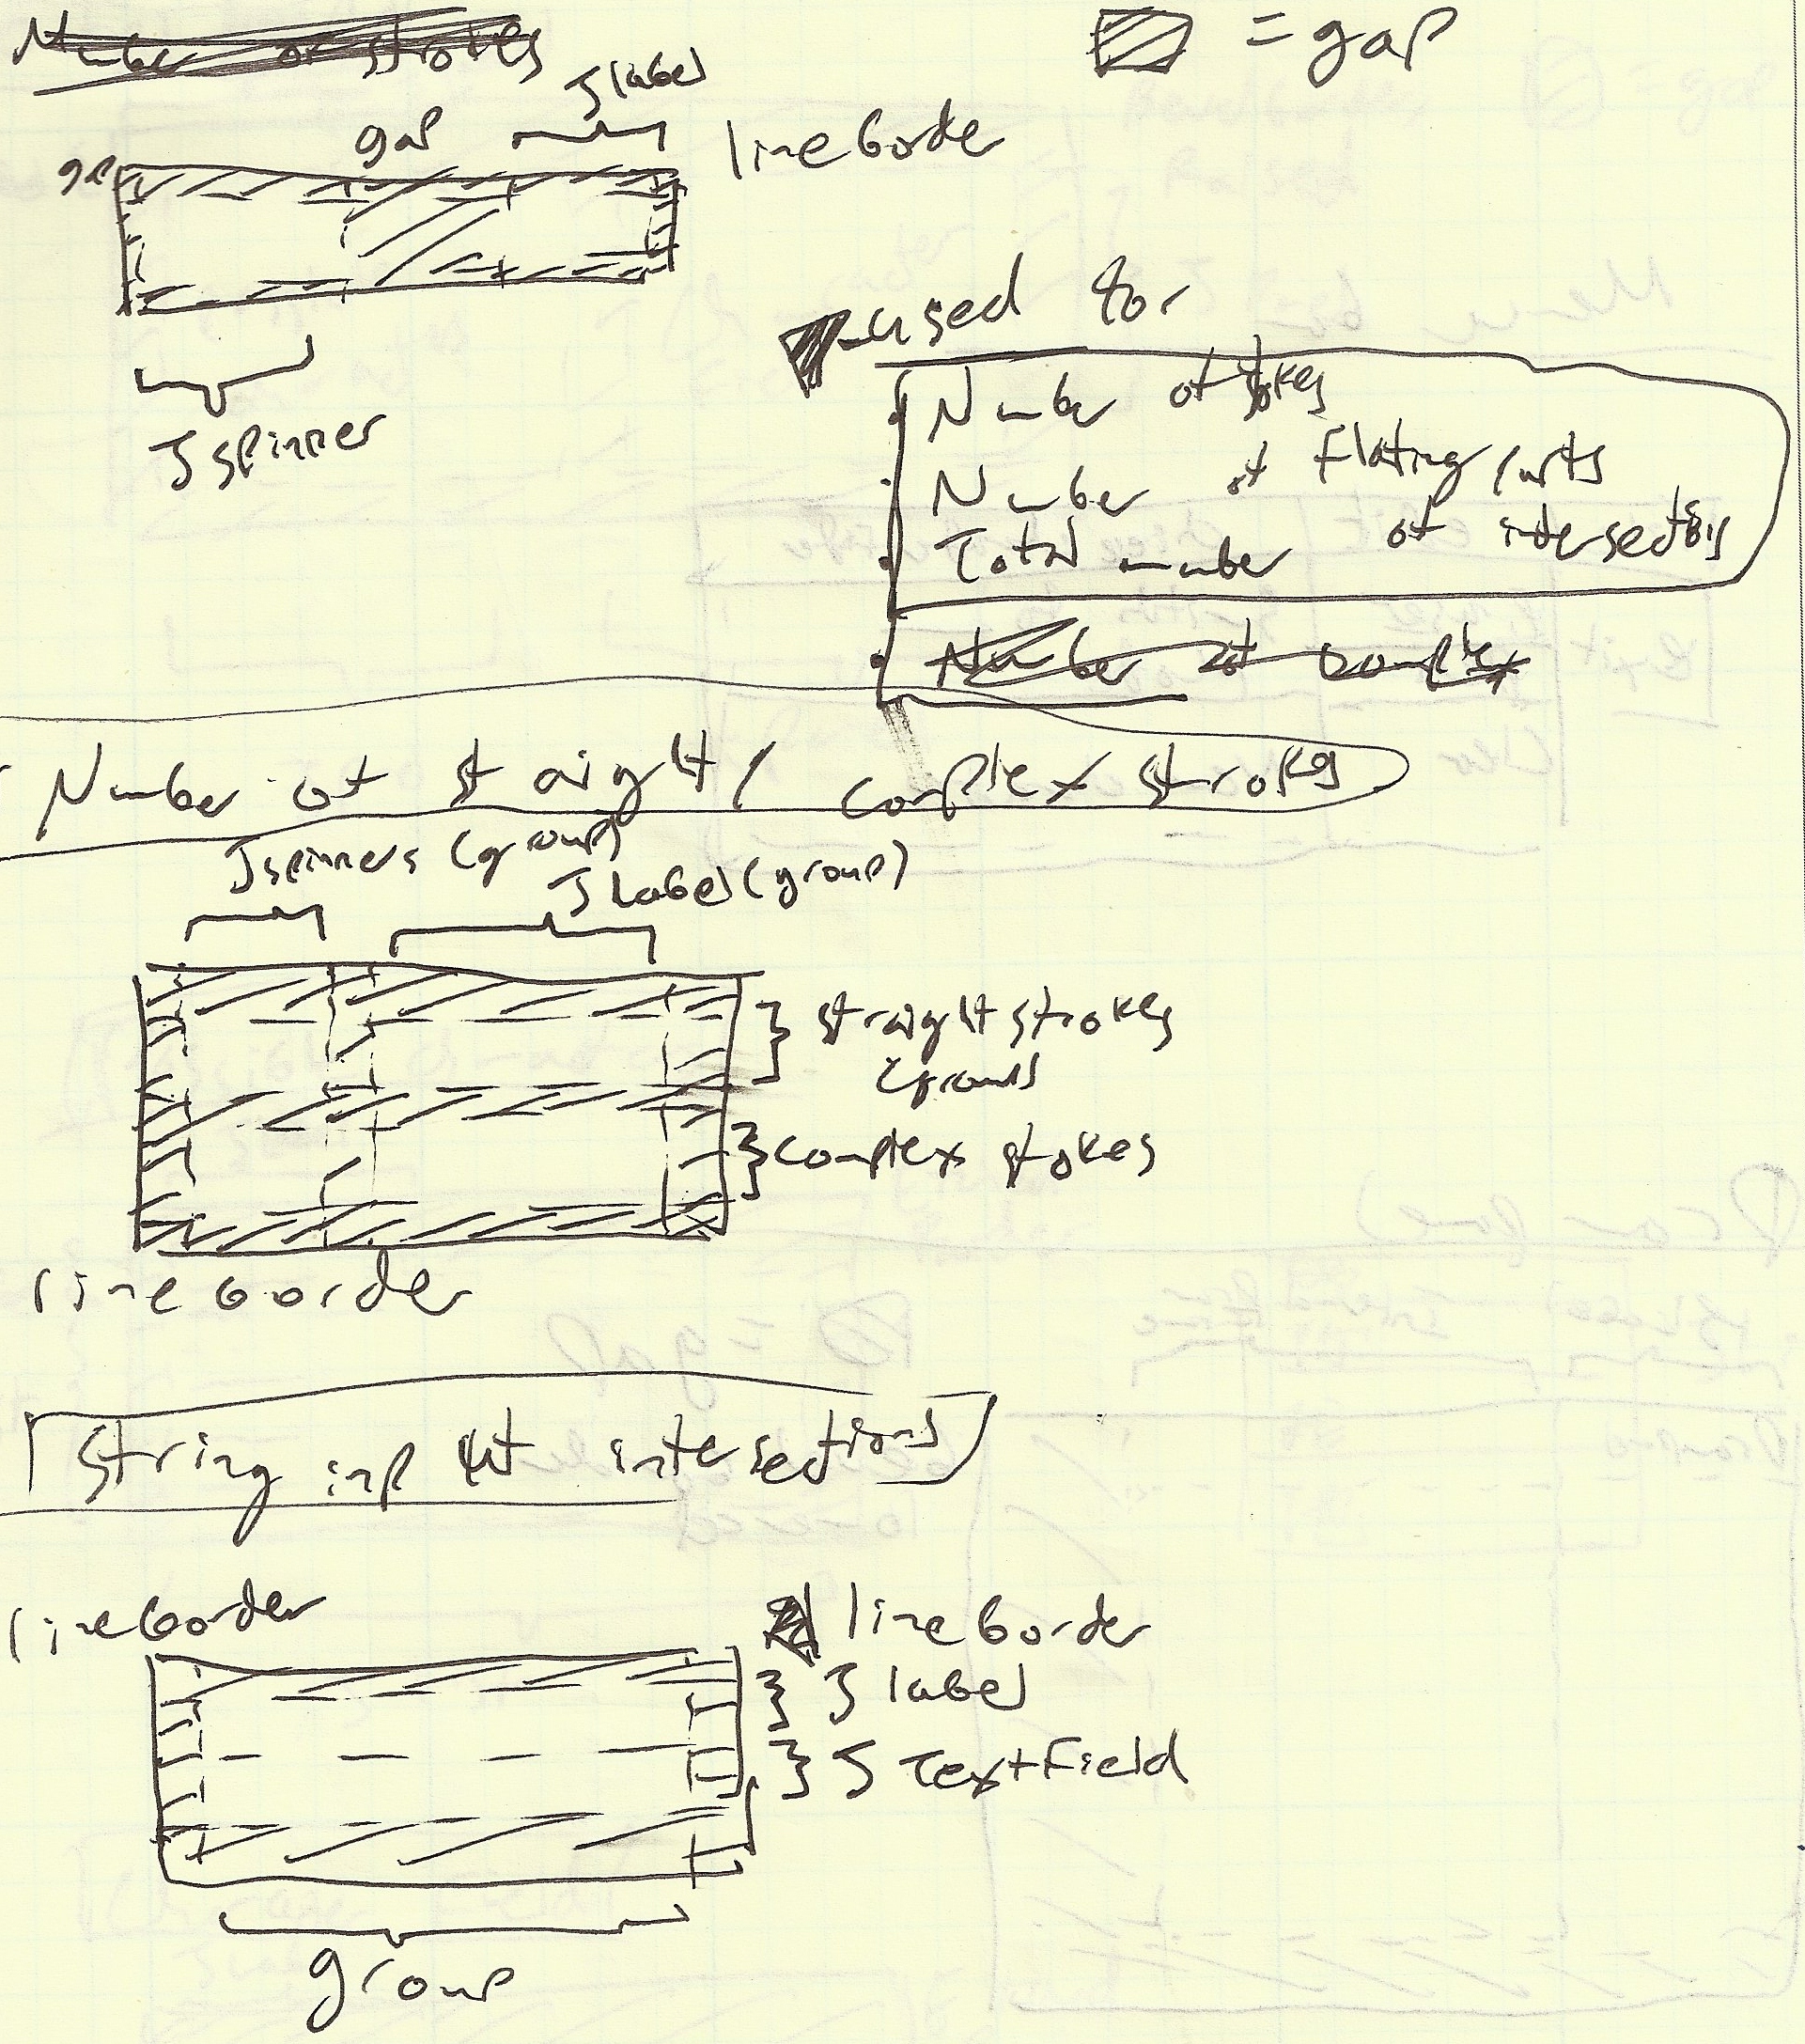 Number of strokes
= gap
Jlabel
gap
line border
gap
used for
JSpinner
Number of stokes
Number of floating parts
Total number of intersections
Number of complex
Number of straight / complex strokes
JSpinners (group)
JLabel (group)
straight strokes
(group)
complex stokes
line border
String input intersections
line border
line border
Jlabel
JTextField
group